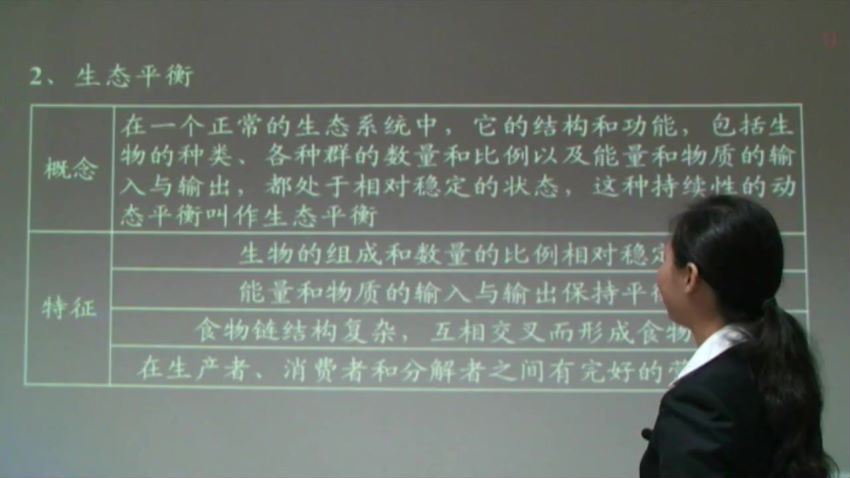 2、生态平衡
概念
在一个正常的生态系统中，它的结构和功能，包括生
物的种类、各种群的数量和比例以及能量和物质的输
入与输出，都处于相对稳定的状态，这种持续性的动
态平衡叫作生态平衡
特征
生物的组成和数量的比例相对稳定
能量和物质的输入与输出保持平衡
食物链结构复杂，互相交叉而形成食物
在生产者、消费者和分解者之间有完好的营